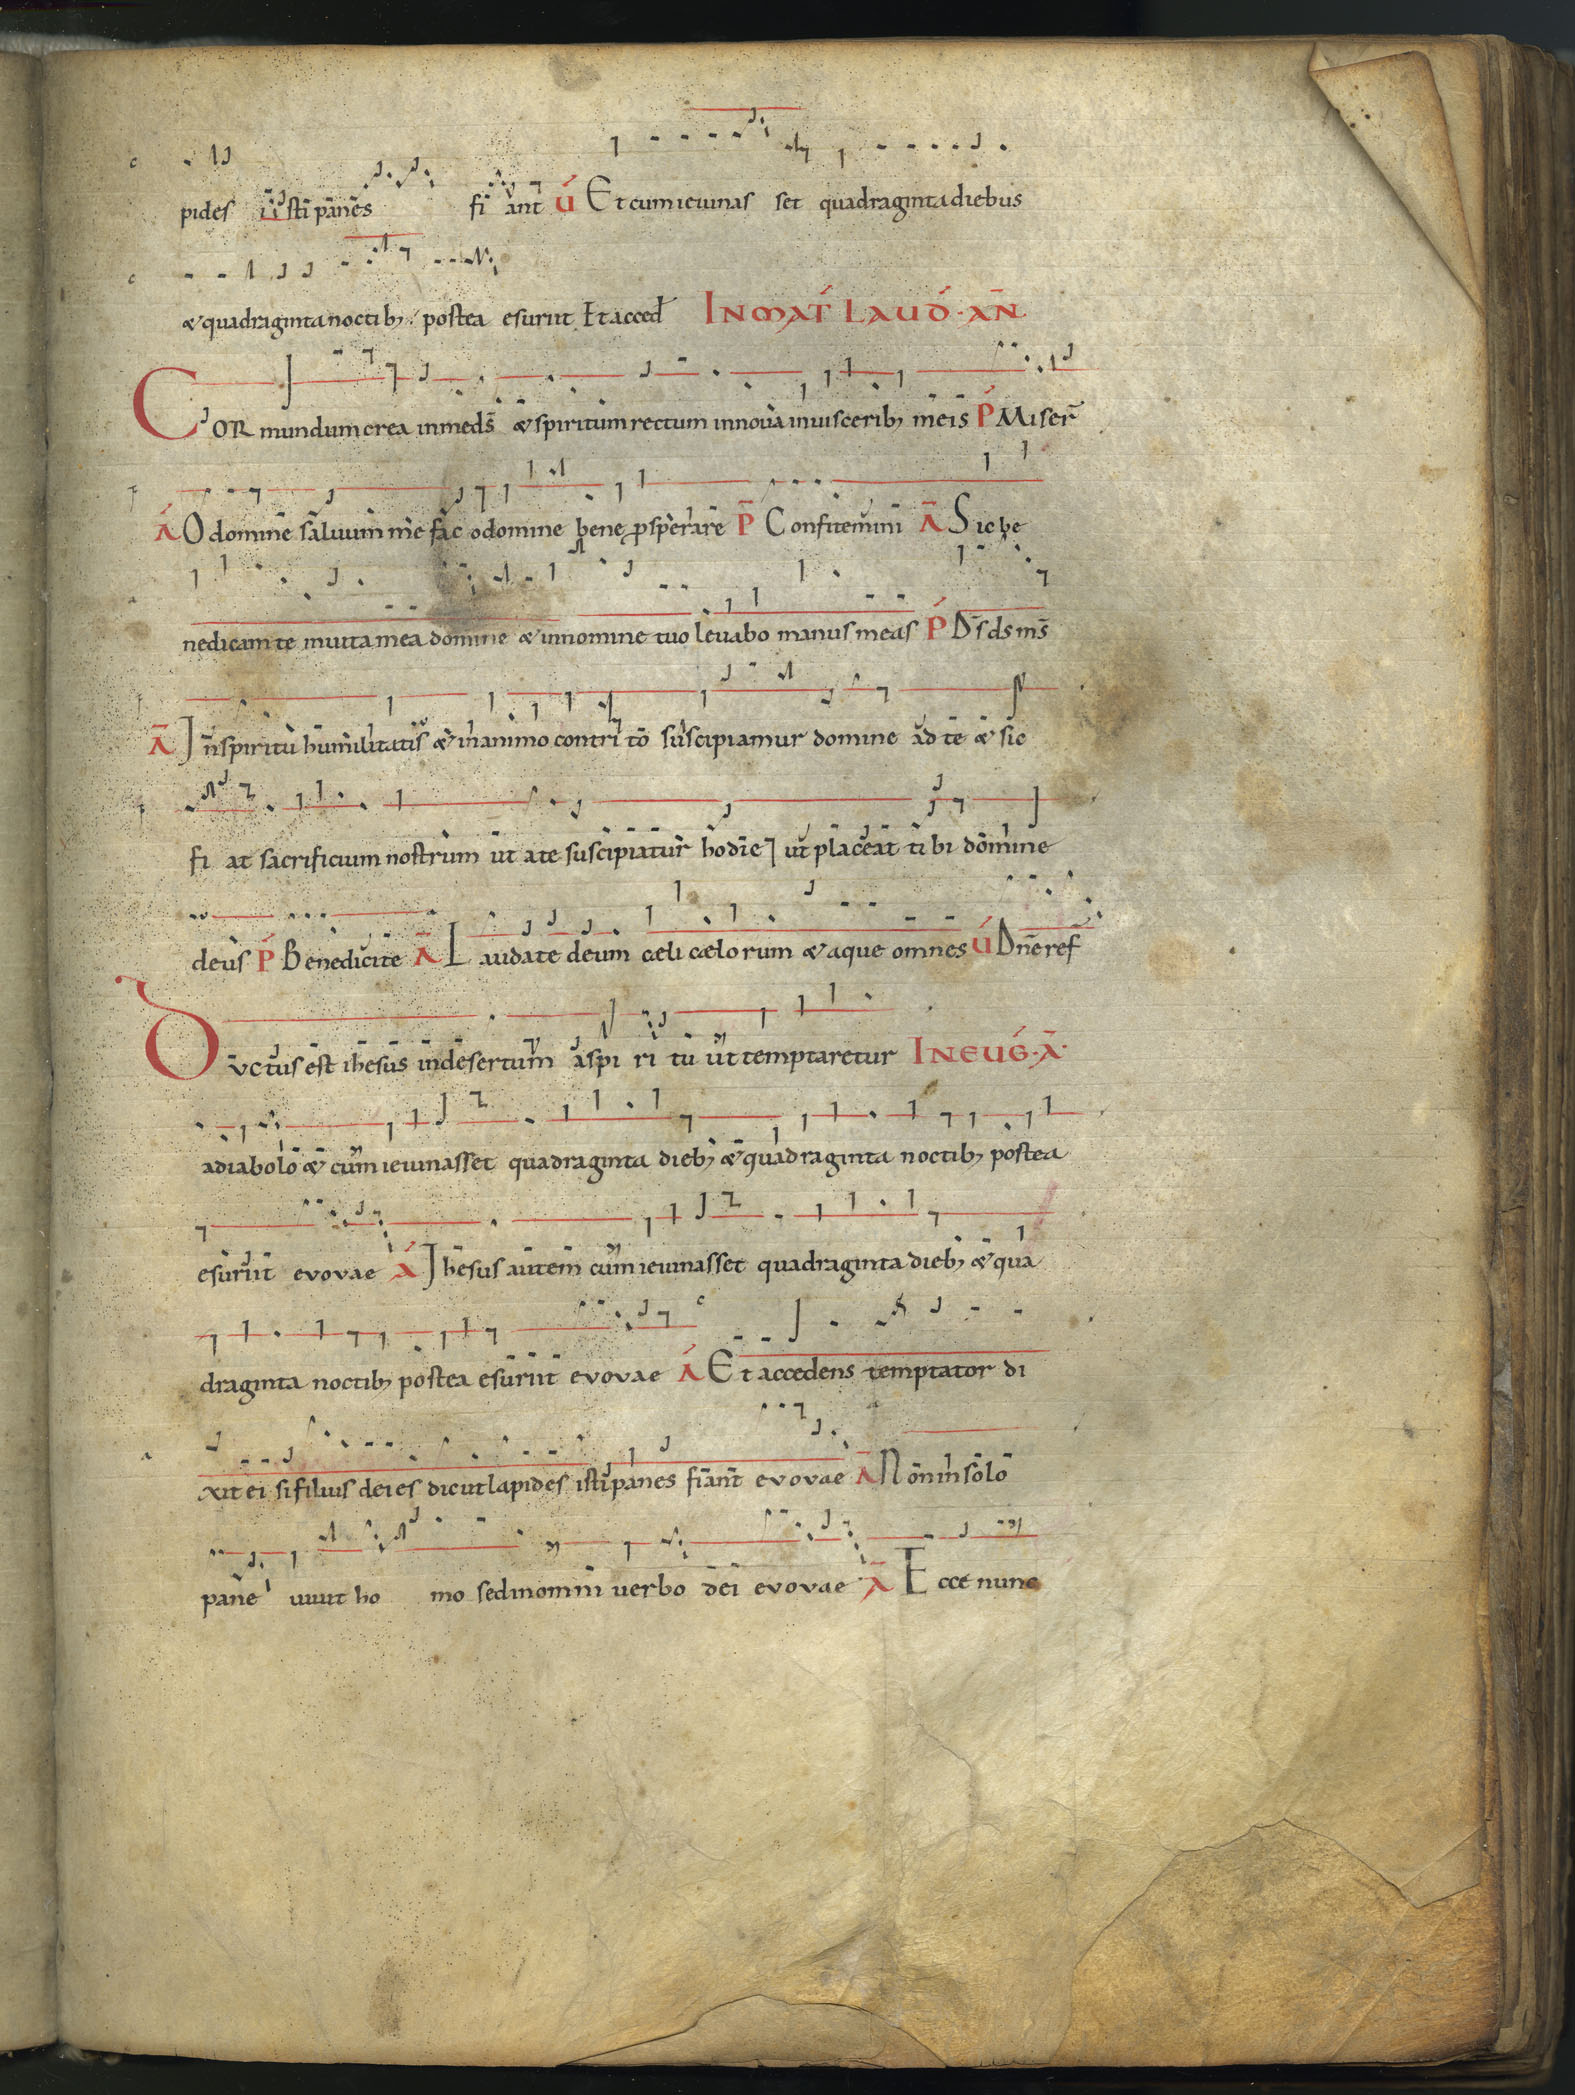 pides isti panes fi ant V Et cum ieiunas set quadraginta diebus
& quadraginta noctib; postea esuriit Et acced IN MAT LAUD · AN
COR mundum crea in me ds & spiritum rectum innova in uisceribus meis P Miser
A O domine saluum me fac o domine bene prosperare P Confitemini A Sic be
nedicam te in uita mea domine & in nomine tuo leuabo manus meas P Ds ds ms
A In spiritu humilitatis & in animo contri to suscipiamur domine ad te & sic
fi at sacrificium nostrum ut a te suscipiatur hodie ut placeat ti bi domine
deus P Benedicite A Laudate deum caeli caelorum & aque omnes V Dne ref
Ductus est ihesus in desertum a spi ri tu ut temptaretur IN EUG · A ·
a diabolo & cum ieiunasset quadraginta dieb; & quadraginta noctib; postea
esuriit evovae A Ihesus autem cum ieiunasset quadraginta dieb; & qua
draginta noctib; postea esuriit evovae A Et accedens temptator di
xit ei si filius dei es dic ut lapides isti panes fiant evovae A Non in solo
pane uiuit ho mo sed in omni uerbo dei evovae A Ecce nunc